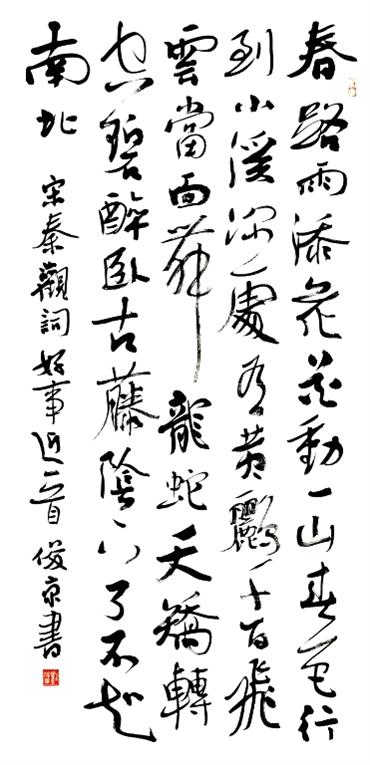 春路雨添花花動一山春色行
到小溪深處有黄鸝千百飛
雲當面舞龍蛇夭矯轉
空碧醉臥古藤陰下了不知
南北
宋秦觀詞好事近一首俊京書